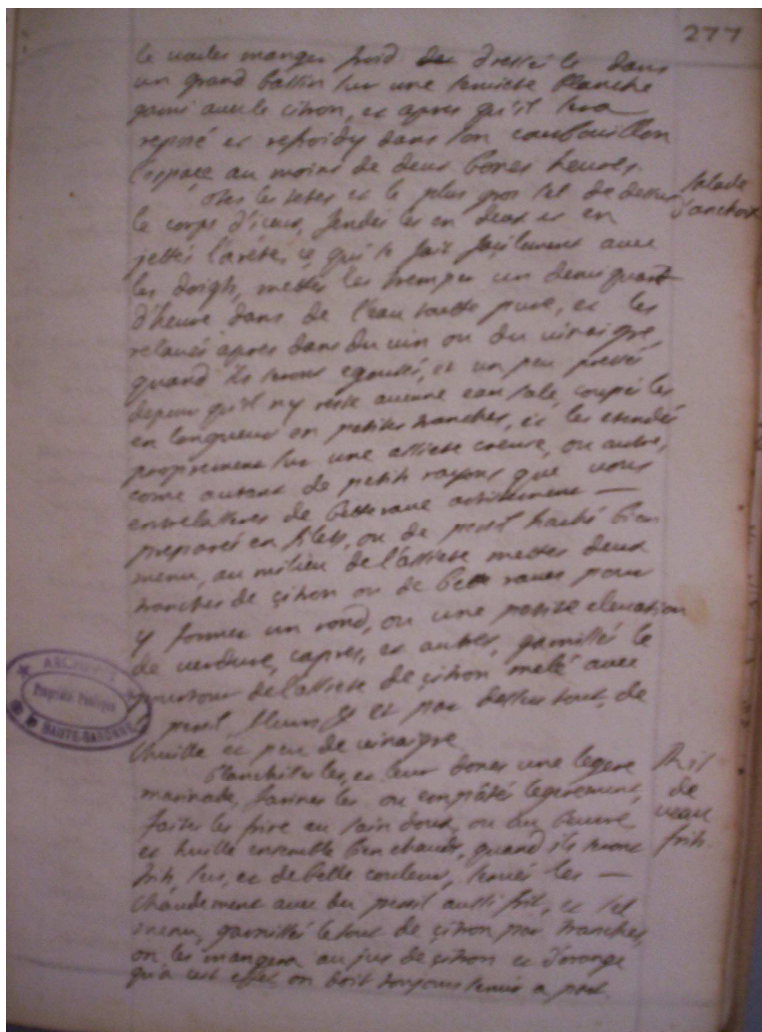 277
le voules manger froid dressé le dans
un grand bassin sur une serviete blanche
garni avec le citron, et apres qu'il sera
reposé et refroidy dans son courbouillon
l'espace au moins de deux bones heures.
salade
d'anchois
Otes les tetes et le plus gros sel de dessus
le corps d'iceux, fendes les en deux et en
jettés l'arete, ce qui se fait façilement avec
les doigts, mettes les tremper un demi quart
d'heure dans de l'eau toutte pure, et les
relavés apres dans du vin ou du vinaigre,
quand ils seront egoutés, et un peu pressés
depeur qu'il ny reste aucune eau sale, coupés les
en longueur en petites tranches, et les etendés
proprement sur une assiete creuse, ou autre,
come autant de petits rayons que vous
entrelasseres de betterave
preparés en filets, ou de persil haché bien
menu, au milieu de l'assiete mettes deux
tranches de çitron ou de bette raves pour
y former un rond, ou une petite elevation
de verdure, capres, et autres, garnissés le
pourtour de l'assiete de çitron melé avec
persil et par dessus tout, de
l'huille et peu de vinaigre
Ris
de
veau
frits.
Blanchisses les, et leur dones une legere
marinade, farines les ou empâtés legerement,
faites les frire au sain doux, ou au beurre
et huille ensemble bien chauds, quand ils seront
frits, sec, et de belle couleur, servés les
chaudement avec du persil aussi frit, et sel
menu, garnissés le tout de çitron par tranches,
on les mangera au jus de çitron et d'orange
qu'a cet effet on doit toujours servir a part.
ARCHIVES
Propriété Publique
HAUTE-GARONNE